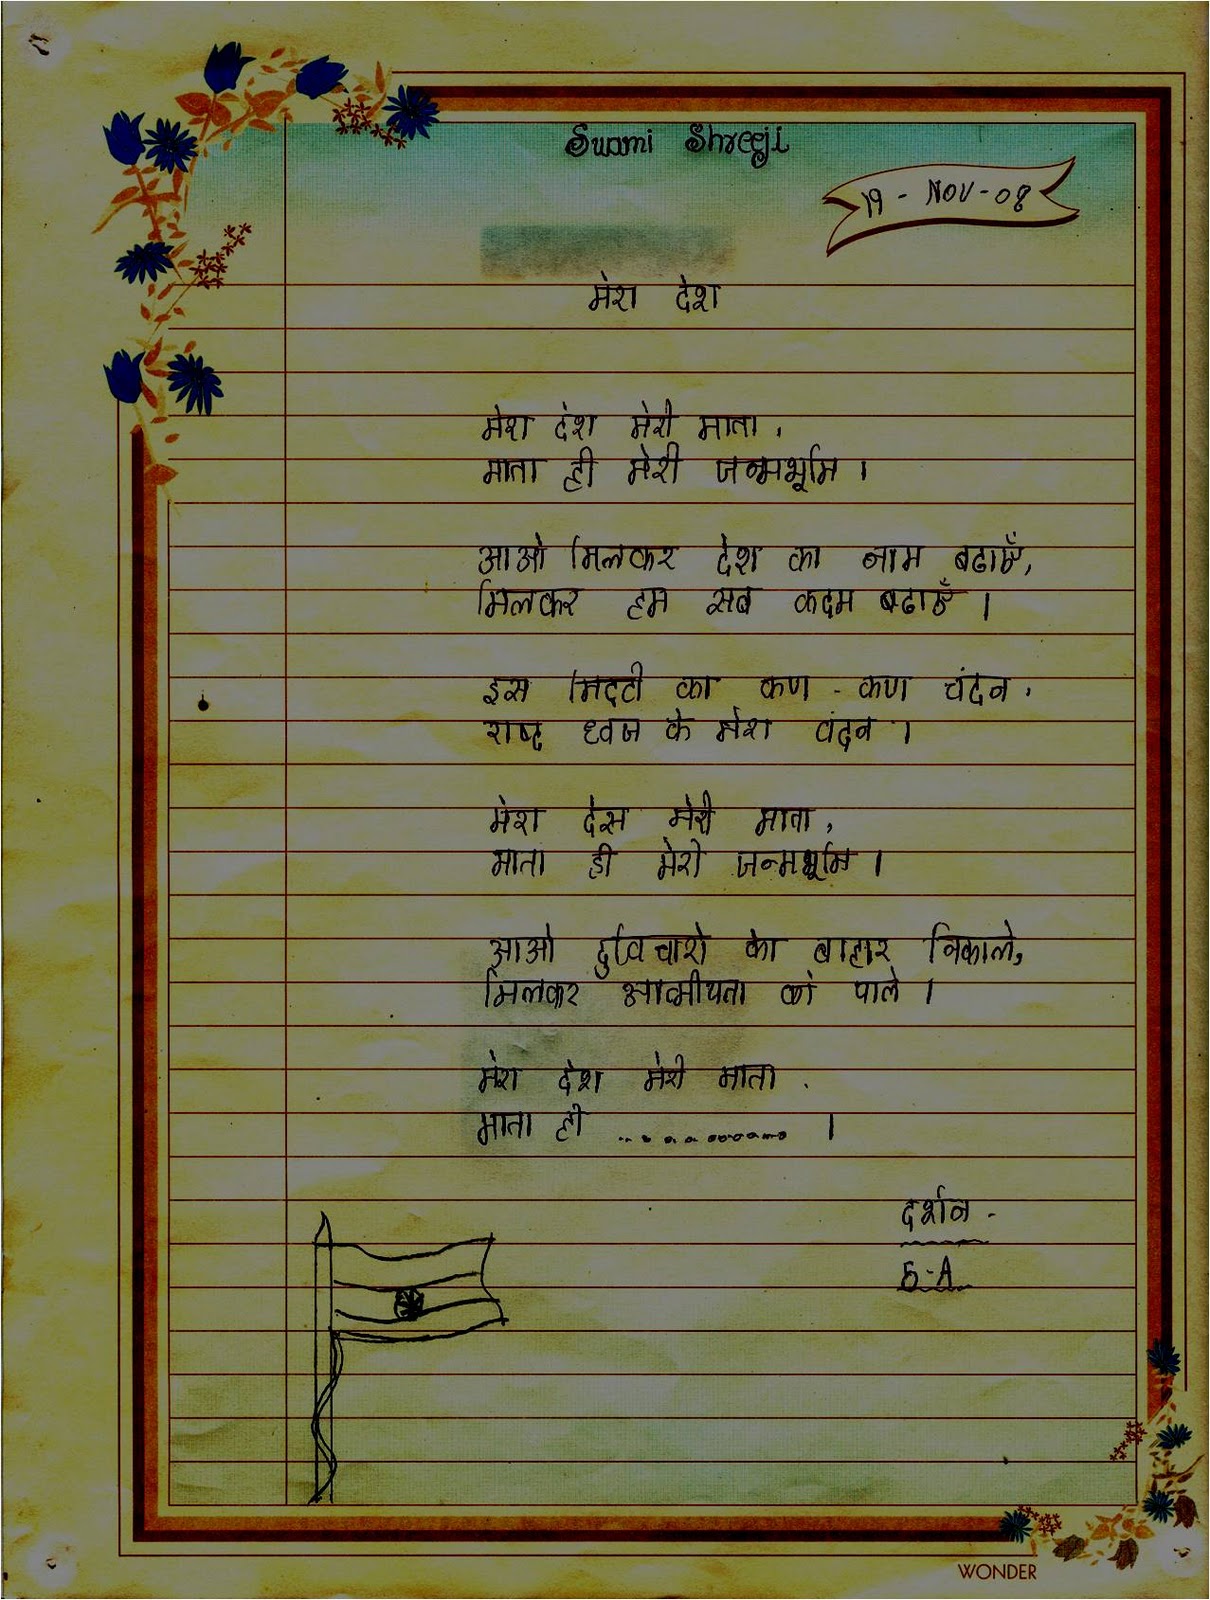 Swami Shreeji
19 - NOV - 08
मेरा देश
मेरा देश मेरी माता,
माता ही मेरी जन्मभूमि ।
आओ मिलकर देश का नाम बढाऐँ,
मिलकर हम सब कदम बढाऐँ ।
इस मिट्टी का कण - कण चंदन,
राष्ट्र ध्वज के मेरा वंदन ।
मेरा देस मेरी माता,
माता ही मेरी जन्मभूमि ।
आओ दुर्विचारो को बाहार निकाले,
मिलकर आत्मीयता को पाले ।
मेरा देश मेरी माता .
माता ही ............... ।
दर्शन -
5-A
WONDER